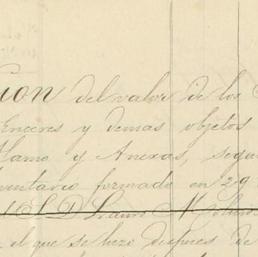 cion del valor de los
Enceres y demas objetos
Llamo y Anexas, segu
ventario formado en 29
el que se hizo despues de